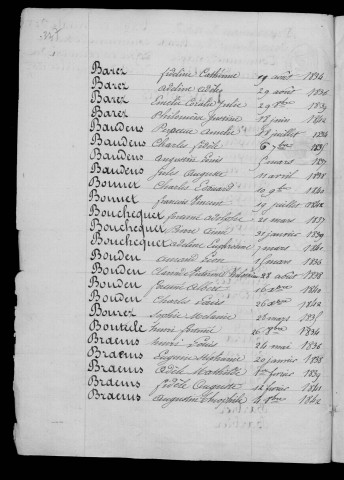 Barez fideline Catherine 19 août 1834
Barez Adeline Adèle 29 août 1836
Barez Emelie Coralie Julie 29 8bre 1839
Barez Philomène Justine 18 juin 1842
Baudens Amelie 18 juillet 1834
Baudens Charles fidèle 6 7bre 1835
Baudens Augustin Louis mars 1837
Baudens Jules Auguste 11 avril 1838
Bonnet Charles Edouard 10 9bre 1840
Bonnet francois Vincent 19 juillet 1842
Bouchequet Adolphe 21 mars 1837
Bouchequet Anne 30 janvier 1839
Bouchequet Adeline Euphrosine 7 mars 1840
Bouden Armand Léon mars 1836
Bouden Antoinette 28 août 1838
Bouden Albert 16 1840
Bouden Charles Louis 26 1842
Bourez Sophie Melanie 26 mars 1835
Bouteille henri 26 8bre 1834
Braems henri Louis 24 mai 1836
Braems Eugenie Stéphanie 20 janvier 1838
Braems Adèle Mathilde 1er fevrier 1839
Braems fidèle Auguste 12 fevrier 1841
Braems Augustin Théophile 4 8bre 1842